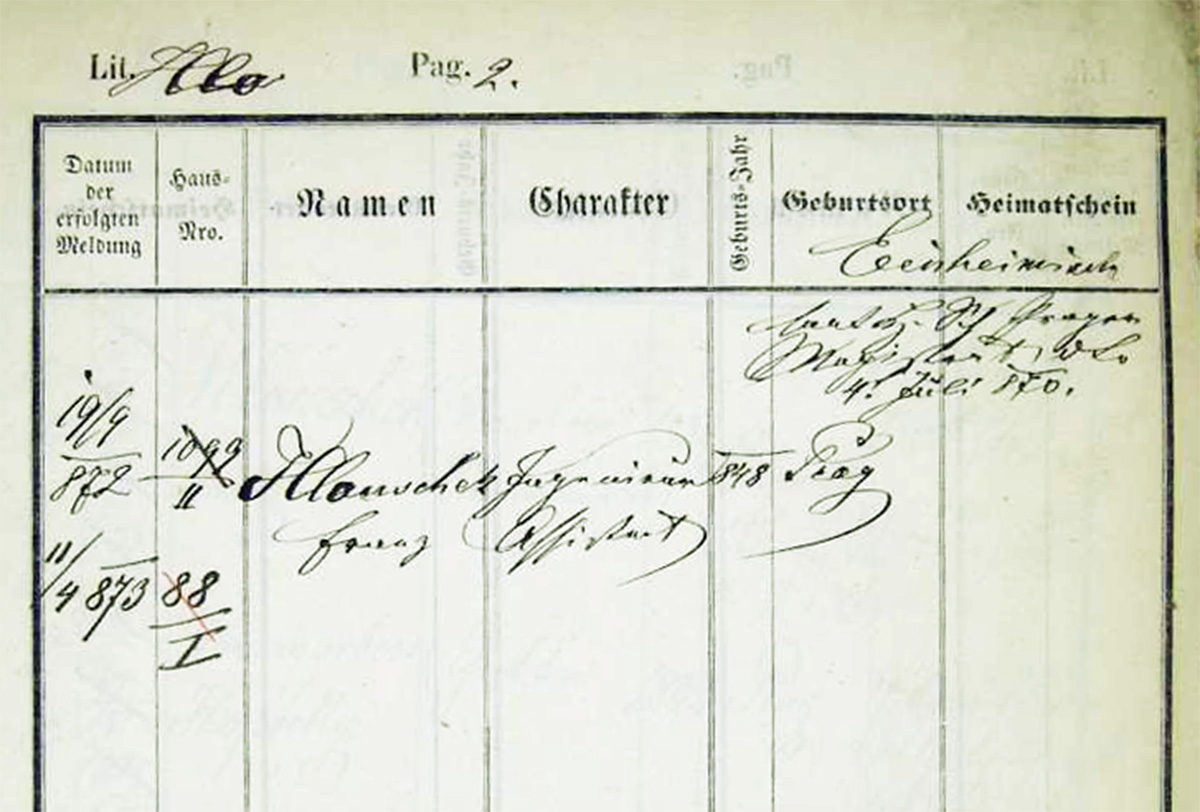 Lit. Hla Pag. 2.
Datum der erfolgten Meldung
Haus-Nro.
Namen
Charakter
Geburts-Jahr
Geburtsort
Heimatschein
Einheimisch
laut H. Sch Prager
Magistrat ddo
4. Juli 870.
19/9 872
1092/II
Hlauschek Ingenieur 848 Prag
Franz Assistent
11/4 873 88/I